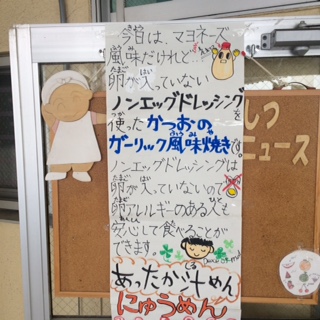 今日は、マヨネーズ
風味だけれど…
卵が入っていない
ノンエッグドレッシングを
使ったかつおの
ガーリック風味焼きです。
ノンエッグドレッシングは
卵が入っていないので
卵アレルギーのある人も
安心して食べることが
できます。
あったか汁めん
にゅうめん
しつ
ニュース